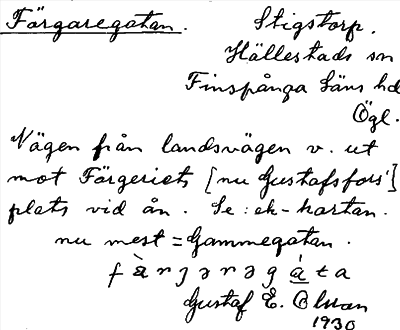 Färgaregatan. Stigstorp.
Hällestads sn
Finspånga läns hd
Ögl.
Vägen från landsvägen v. ut
mot Färgeriets [nu Gustafsfors']
plats vid ån. Se: ek-kartan.
nu mest = Gammegatan.
f à r j ə r ə g á t a
Gustaf E. Olsson
1930